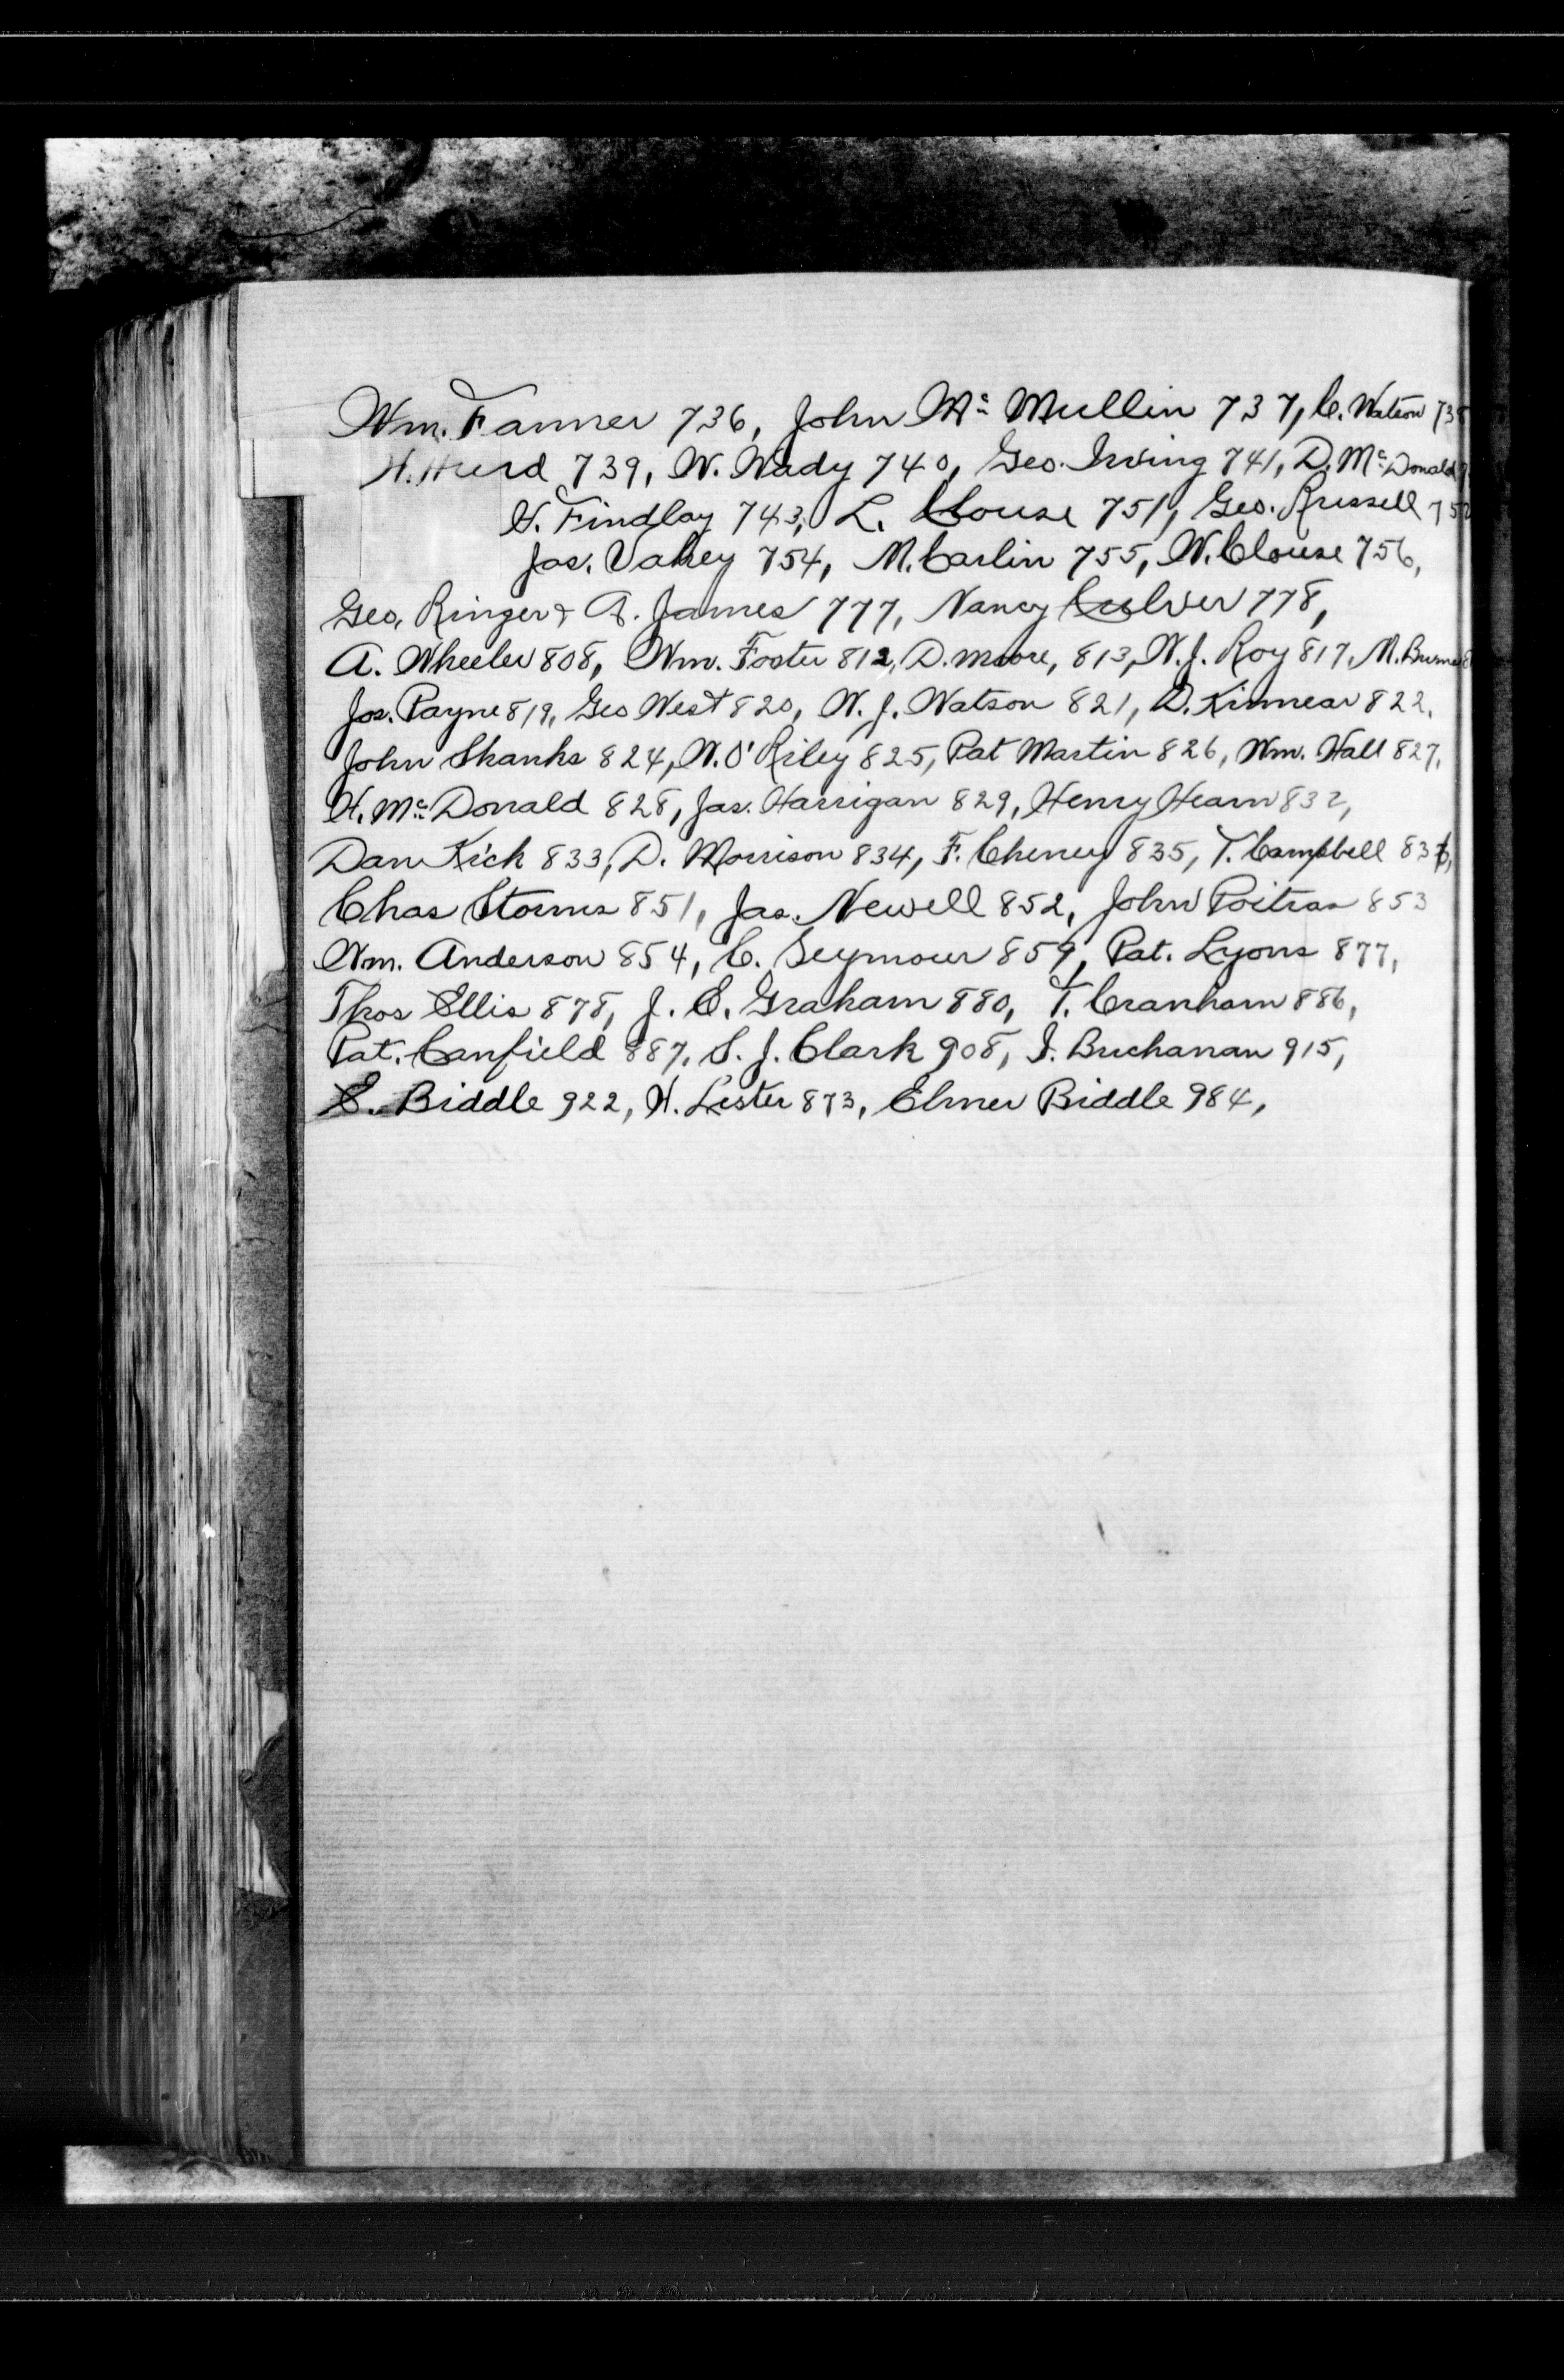 Wm. Fanner 736, John Mc Mullin 737, C. Watson 738
H. Hurd 739, W. Wady 740, Geo. Irving 741, D. Mc Donald
G. Findlay 743, L. Clouse 751, Geo. Russell 752
Jas. Vahey 754, M. Carlin 755, W. Clouse 756,
Geo. Ringer & A. James 777, Nancy Culver 778,
A. Wheeler 808, Wm. Foster 812, D. Moore, 813, W. J. Roy 817, M. Burns
Jos. Payne 819, Geo West 820, W. J. Watson 821, D. Kinnear 822,
John Shanks 824, W. O'Riley 825, Pat Martin 826, Wm. Hall 827,
H. Mc Donald 828, Jas. Harrigan 829, Henry Hearn 832,
Dan Kick 833, D. Morrison 834, F. Cheney 835, T. Campbell 836,
Chas Storms 851, Jas. Newell 852, John Poitras 853
Wm. Anderson 854, C. Seymour 859, Pat. Lyons 877,
Thos Ellis 878, J. E. Graham 880, T. Cranham 886,
Pat. Canfield 887, S. J. Clark 908, I. Buchanan 915,
E. Biddle 922, H. Lester 873, Elmer Biddle 984,